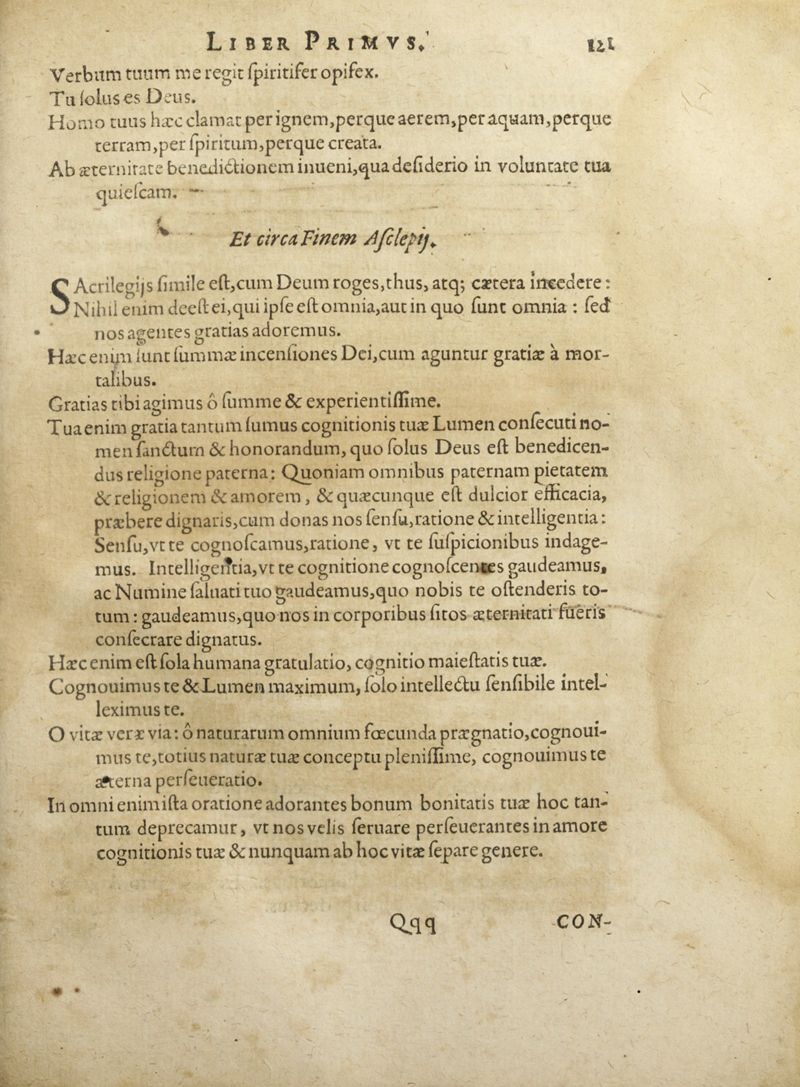 LIBER PRIMVS. 121
Verbum tuum me regit ſpiritifer opifex.
Tu ſolus es Deus.
Homo tuus hæc clamat per ignem,perque aerem,per aquam,perque
terram,per ſpiritum,perque creata.
Ab æternitate benedictionem inueni,qua deſiderio in voluntate tua
quieſcam.
Et circa Finem Aſclepij.
SAcrilegijs ſimile eſt,cum Deum roges,thus, atq; cætera incedere:
Nihil enim deeſt ei,qui ipſe eſt omnia,aut in quo ſunt omnia : ſed
nos agentes gratias adoremus.
Hæc enim ſunt ſummæ incenſiones Dei,cum aguntur gratiæ à mor-
talibus.
Gratias tibi agimus ô ſumme & experientiſſime.
Tua enim gratia tantum ſumus cognitionis tuæ Lumen conſecuti no-
men ſanctum & honorandum, quo ſolus Deus eſt benedicen-
dus religione paterna: Quoniam omnibus paternam pietatem
& religionem & amorem, & quæcunque eſt dulcior efficacia,
præbere dignaris,cum donas nos ſenſu,ratione & intelligentia:
Senſu,vt te cognoſcamus,ratione, vt te ſuſpicionibus indage-
mus. Intelligentia,vt te cognitione cognoſcentes gaudeamus,
ac Numine ſaluati tuo gaudeamus,quo nobis te oſtenderis to-
tum : gaudeamus,quo nos in corporibus ſitos æternitati fueris
conſecrare dignatus.
Hæc enim eſt ſola humana gratulatio, cognitio maieſtatis tuæ.
Cognouimus te & Lumen maximum, ſolo intellectu ſenſibile intel-
leximus te.
O vitæ veræ via: ô naturarum omnium fœcunda prægnatio,cognoui-
mus te,totius naturæ tuæ conceptu pleniſſime, cognouimus te
æterna perſeueratio.
In omni enim iſta oratione adorantes bonum bonitatis tuæ hoc tan-
tum deprecamur, vt nos velis ſeruare perſeuerantes in amore
cognitionis tuæ & nunquam ab hoc vitæ ſepare genere.
Qqq CON-